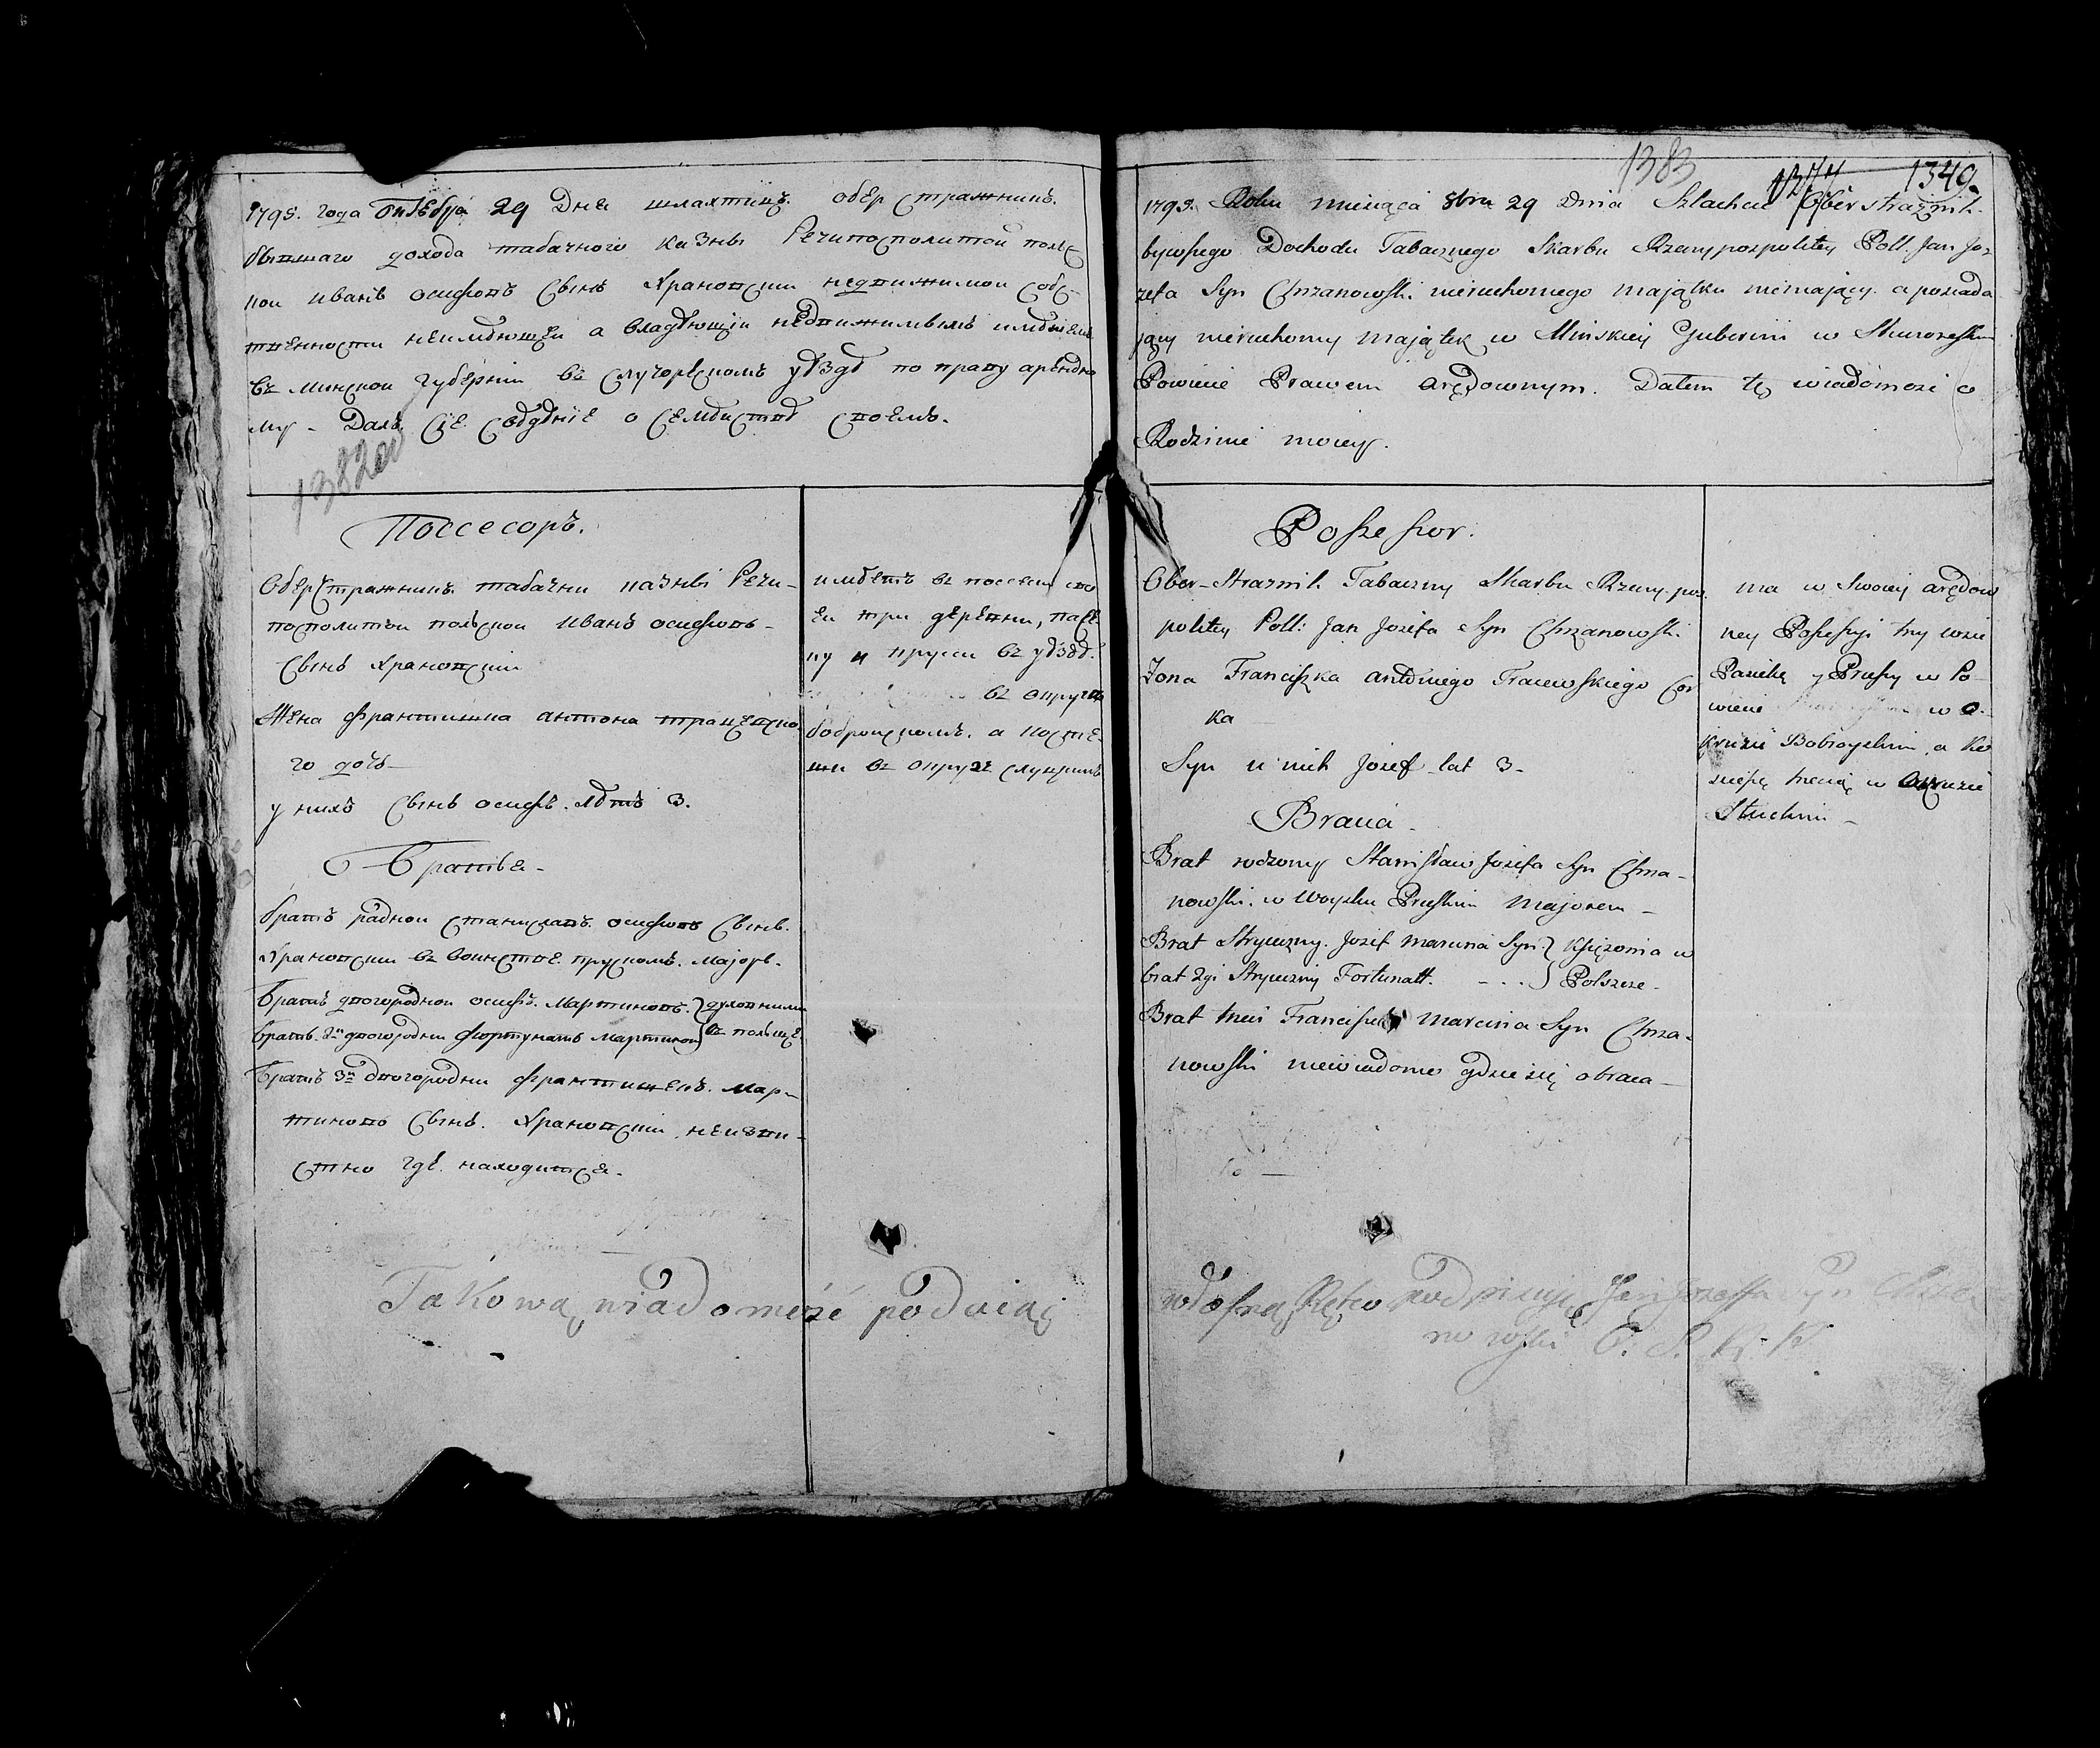 1795. года Октѣбра 29 Дня шляхтицъ. обер стражникъ.
бывшаго дохода табачного казны Речипосполитой полс
кои иванъ осифовъ сынъ Храновскии недвижимои собс-
твенности неимѣющеи а владѣющіи недвижимымъ имѣнiемъ
въ минскои губернiи въ случорескомъ уѣздѣ по праву арендно
му - Далъ сiе свѣдѣнiе о семѣиствѣ своемъ.
1382об
Поссесоръ.
Оберстражникъ табачни казны Речи-
посполитои полскои иванъ осифовъ-
сынъ Храновскiи
Жена францишка антона трацевско
го дочь-
у нихъ сынъ осифъ. лѣтъ 3.
Братья-
братъ раднои станиславъ. осифовъ сынъ.
Храновскии въ воинстве. прускомъ. маjоръ.
братъ двогороднои осифъ. Мартиновъ. духовними
братъ. 2й двогородни фортунатъ мартинов въ полще
братъ 3й двогородни францишекъ. мар-
тиновъ сынъ. Храновскiи, неизви-
стно где. находится-
имѣетъ въ поссесiи сво
еи три деревни, пасе
ку и пруси въ уѣздѣ.
въ округе
бобруискомъ. а косте-
въ округе слуцкимъ
Takową wiadomość podaiąc
1383
1374
1349.
1795. Roku miesiąca 8bra 29 dnia Szlachcic Oberstrażnik.
bywszego Dochodu Tabacznego Skarbu Rzeczypospolitey Poll. Jan Jo-
zefa Syn Chrzanowski nieruchomego majątku niemający. a posiada
jący nieruchomy majątek w Minskiey Guberini w Słuzoreskim
Powiecie Prawem arędownym. Dałem tę wiadomość o
Rodzinie moiey.
Possessor.
Ober-Straznik Tabaczny Skarbu Rzeczy-pos.
politey Poll: Jan Jozefa Syn Chrzanowski
Zona Franciszka antoniego Tracewskiego Cor
ka
Syn u nich Jozef lat 3-
Bracia-
Brat rodzony Stanisław Jozefa Syn Chrza-
nowski. w Woysku Pruskim Majorem-
Brat Stryieczny. Jozef Marcina Syn. Księżmia w
brat 2gi Stryieczny Fortunatt. - . . . Polszcze-
Brat trzeci Franciszek Marcina Syn Chrza-
nowski niewiadomo gdzie się obraca-
ma w Swoiey arędow
ney Possessyi trzy wsie
Pasiekę y Prusy w Po-
wiecie w O-
kruzie Bobroyskim, a Ko
trzecią w Okruzie
Słuckim-
podpisuję Jan Jozeffa Syn Chrza
nowski O. S. K. K.